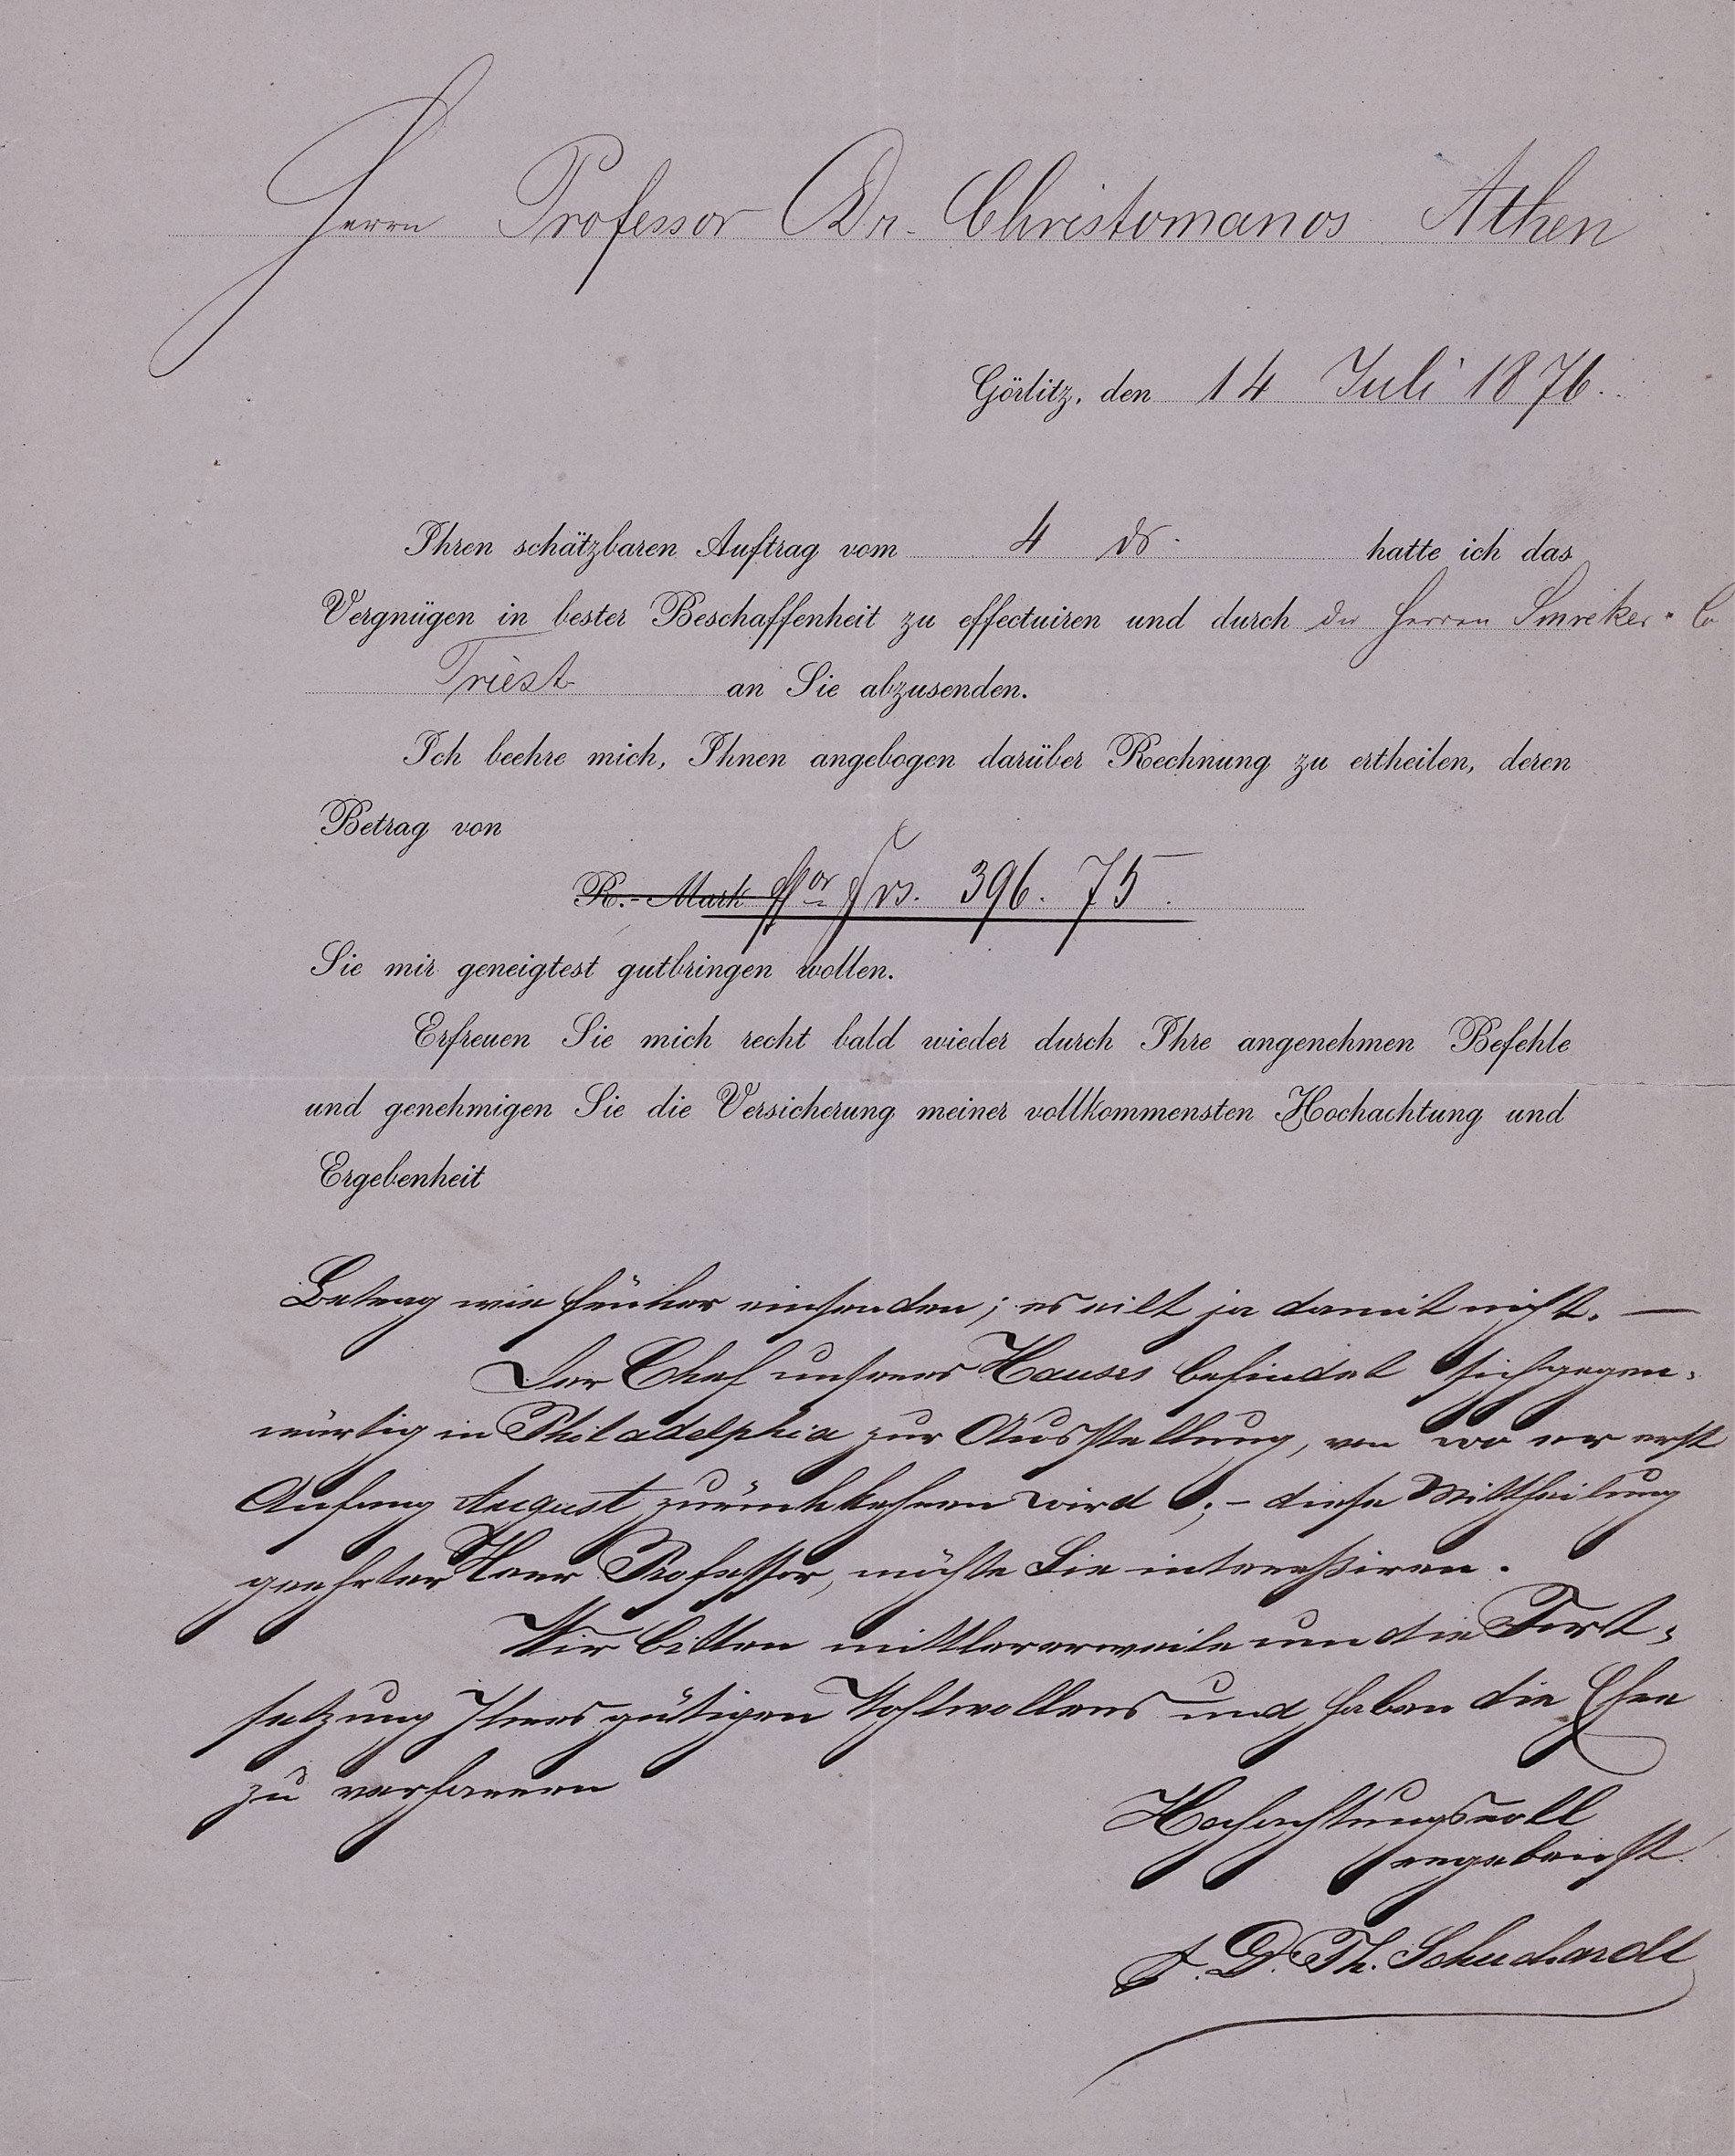 Herrn Professor Dr. Christomanos Athen
Görlitz, den 14 Juli 1876.
Ihren schätzbaren Auftrag vom 4 ds. hatte ich das
Vergnügen in bester Beschaffenheit zu effectuiren und durch die Herren Smreker & Co
Triest an Sie abzusenden.
Ich beehre mich, Ihnen angebogen darüber Rechnung zu ertheilen, deren
Betrag von
R.-Mark Frs. 396. 75.
Sie mir geneigtest gutbringen wollen.
Erfreuen Sie mich recht bald wieder durch Ihre angenehmen Befehle
und genehmigen Sie die Versicherung meiner vollkommensten Hochachtung und
Ergebenheit
Betrag wie früher einsenden; es eilt ja damit nicht. —
Der Chef unseres Hauses befindet sich gegen-
wärtig in Philadelphia zur Ausstellung, von wo er erst
Anfang August zurückkehren wird; – diese Mittheilung
geehrter Herr Professor, möchte Sie interessiren.
Wir bitten mittlererweile um die Fort-
setzung Ihres gütigen Wohlwollens und haben die Ehre
zu verharren
Hochachtungsvoll
ergebenst
D. Th. Schuchardt